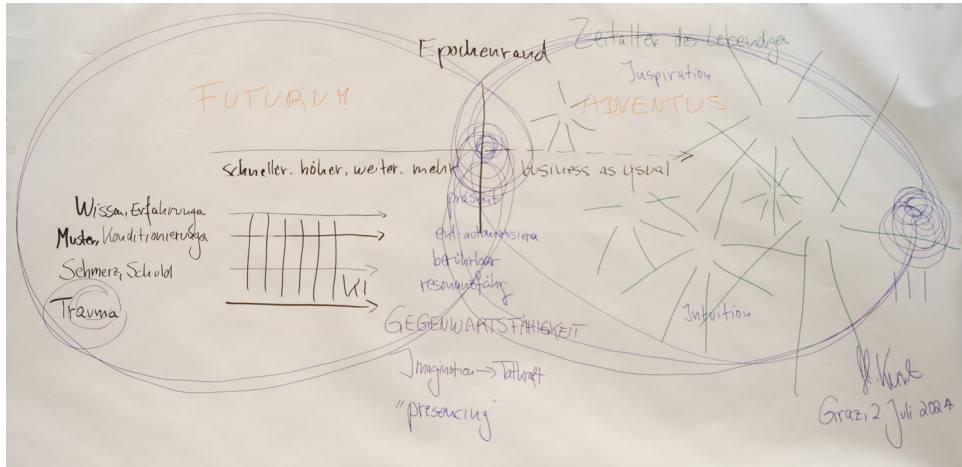 Epochenrand
Zeitalter des Lebendigen
Inspiration
FUTURUM
ADVENTUS
schneller, höher, weiter, mehr
business as usual
Wissen, Erfahrungen
Muster, Konditionierungen
Schmerz, Schuld
Trauma
KI
präsent
ent-automatisieren
berührbar
resonanzfähig
GEGENWARTSFÄHIGKEIT
Imagination → Tatkraft
"presencing"
Intuition
Graz, 2. Juli 2024